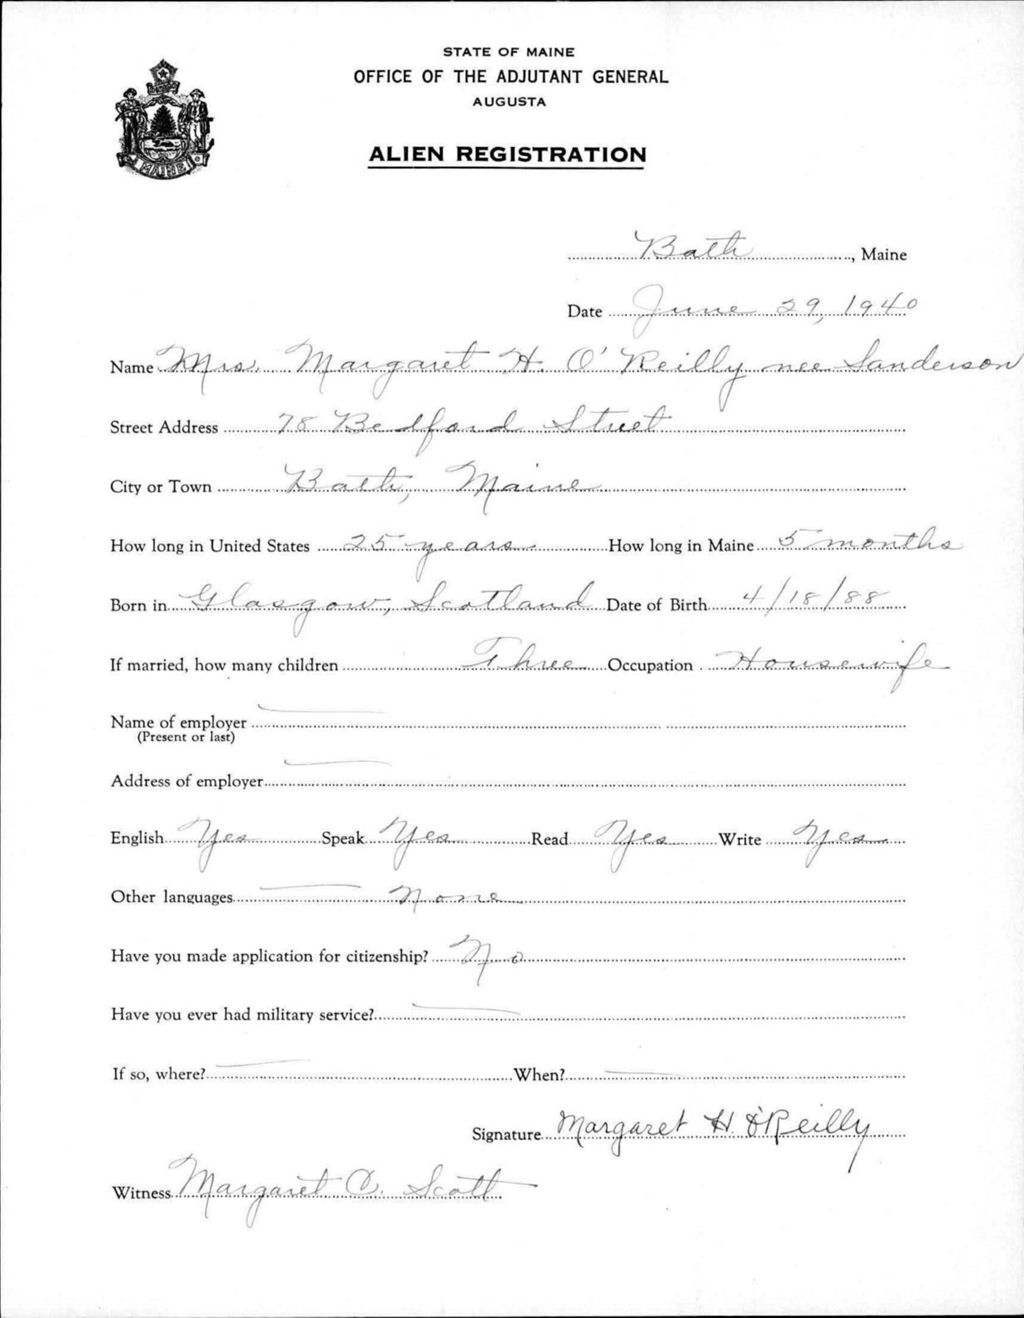 STATE OF MAINE
OFFICE OF THE ADJUTANT GENERAL
AUGUSTA
ALIEN REGISTRATION
MAINE
Bath, Maine
Date June 29, 1940
Name Mrs. Margaret H. O'Reilly nee Sanderson
Street Address 78 Bedford Street
City or Town Bath, Maine
How long in United States 25 years How long in Maine 5 months
Born in Glasgow, Scotland Date of Birth 4/18/88
If married, how many children Three Occupation Housewife
Name of employer
(Present or last)
Address of employer
English Yes Speak Yes Read Yes Write Yes
Other languages None
Have you made application for citizenship? No
Have you ever had military service?
If so, where? When?
Signature Margaret H. O'Reilly
Witness Margaret C. Scott